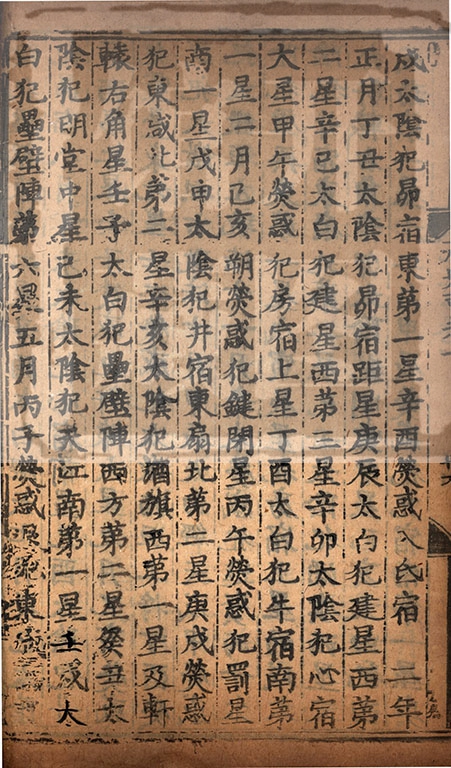 戌太陰犯昴宿東第一星辛酉熒惑入氐宿 二年
正月丁丑太陰犯昴宿距星庚辰太白犯建星西第
二星辛巳太白犯建星西第三星辛卯太陰犯心宿
大星甲午熒惑犯房宿上星丁酉太白犯牛宿南第
一星二月己亥朔熒惑犯鍵閉星丙午熒惑犯罰星
南一星戊申太陰犯井宿東扇北第二星庚戌熒惑
犯東咸北第二星辛亥太陰犯酒旗西第一星及軒
轅右角星壬子太白犯壘壁陣西方第二星癸丑太
陰犯明堂中星己未太陰犯天江南第一星壬戌太
白犯壘壁陣第六星五月丙子熒惑退流東咸